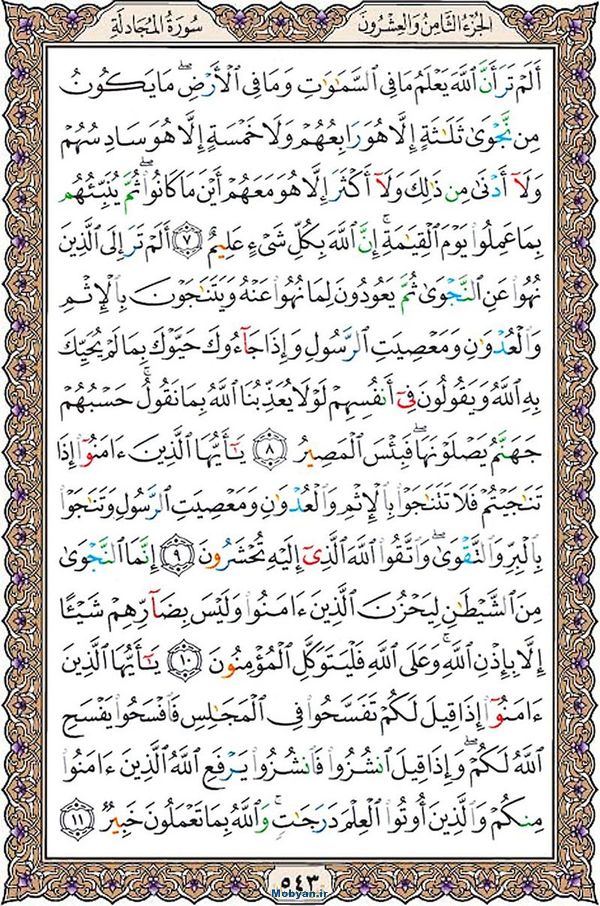 سُورَةُ الْمُجَادَلَةِ
الْجُزْءُ الثَّامِنُ وَالْعِشْرُونَ
أَلَمْ تَرَ أَنَّ ٱللَّهَ يَعْلَمُ مَا فِى ٱلسَّمَٰوَٰتِ وَمَا فِى ٱلْأَرْضِ ۖ مَا يَكُونُ
مِن نَّجْوَىٰ ثَلَٰثَةٍ إِلَّا هُوَ رَابِعُهُمْ وَلَا خَمْسَةٍ إِلَّا هُوَ سَادِسُهُمْ
وَلَآ أَدْنَىٰ مِن ذَٰلِكَ وَلَآ أَكْثَرَ إِلَّا هُوَ مَعَهُمْ أَيْنَ مَا كَانُوا۟ ۖ ثُمَّ يُنَبِّئُهُم
بِمَا عَمِلُوا۟ يَوْمَ ٱلْقِيَٰمَةِ ۚ إِنَّ ٱللَّهَ بِكُلِّ شَىْءٍ عَلِيمٌ ٧ أَلَمْ تَرَ إِلَى ٱلَّذِينَ
نُهُوا۟ عَنِ ٱلنَّجْوَىٰ ثُمَّ يَعُودُونَ لِمَا نُهُوا۟ عَنْهُ وَيَتَنَٰجَوْنَ بِٱلْإِثْمِ
وَٱلْعُدْوَٰنِ وَمَعْصِيَتِ ٱلرَّسُولِ وَإِذَا جَآءُوكَ حَيَّوْكَ بِمَا لَمْ يُحَيِّكَ
بِهِ ٱللَّهُ وَيَقُولُونَ فِىٓ أَنفُسِهِمْ لَوْلَا يُعَذِّبُنَا ٱللَّهُ بِمَا نَقُولُ ۚ حَسْبُهُمْ
جَهَنَّمُ يَصْلَوْنَهَا ۖ فَبِئْسَ ٱلْمَصِيرُ ٨ يَٰٓأَيُّهَا ٱلَّذِينَ ءَامَنُوٓا۟ إِذَا
تَنَٰجَيْتُمْ فَلَا تَتَنَٰجَوْا۟ بِٱلْإِثْمِ وَٱلْعُدْوَٰنِ وَمَعْصِيَتِ ٱلرَّسُولِ وَتَنَٰجَوْا۟
بِٱلْبِرِّ وَٱلتَّقْوَىٰ ۖ وَٱتَّقُوا۟ ٱللَّهَ ٱلَّذِىٓ إِلَيْهِ تُحْشَرُونَ ٩ إِنَّمَا ٱلنَّجْوَىٰ
مِنَ ٱلشَّيْطَٰنِ لِيَحْزُنَ ٱلَّذِينَ ءَامَنُوا۟ وَلَيْسَ بِضَآرِّهِمْ شَيْـًٔا
إِلَّا بِإِذْنِ ٱللَّهِ ۚ وَعَلَى ٱللَّهِ فَلْيَتَوَكَّلِ ٱلْمُؤْمِنُونَ ١٠ يَٰٓأَيُّهَا ٱلَّذِينَ
ءَامَنُوٓا۟ إِذَا قِيلَ لَكُمْ تَفَسَّحُوا۟ فِى ٱلْمَجَٰلِسِ فَٱفْسَحُوا۟ يَفْسَحِ
ٱللَّهُ لَكُمْ ۖ وَإِذَا قِيلَ ٱنشُزُوا۟ فَٱنشُزُوا۟ يَرْفَعِ ٱللَّهُ ٱلَّذِينَ ءَامَنُوا۟
مِنكُمْ وَٱلَّذِينَ أُوتُوا۟ ٱلْعِلْمَ دَرَجَٰتٍ ۚ وَٱللَّهُ بِمَا تَعْمَلُونَ خَبِيرٌ ١١
٥٤٣
Mobyan.ir